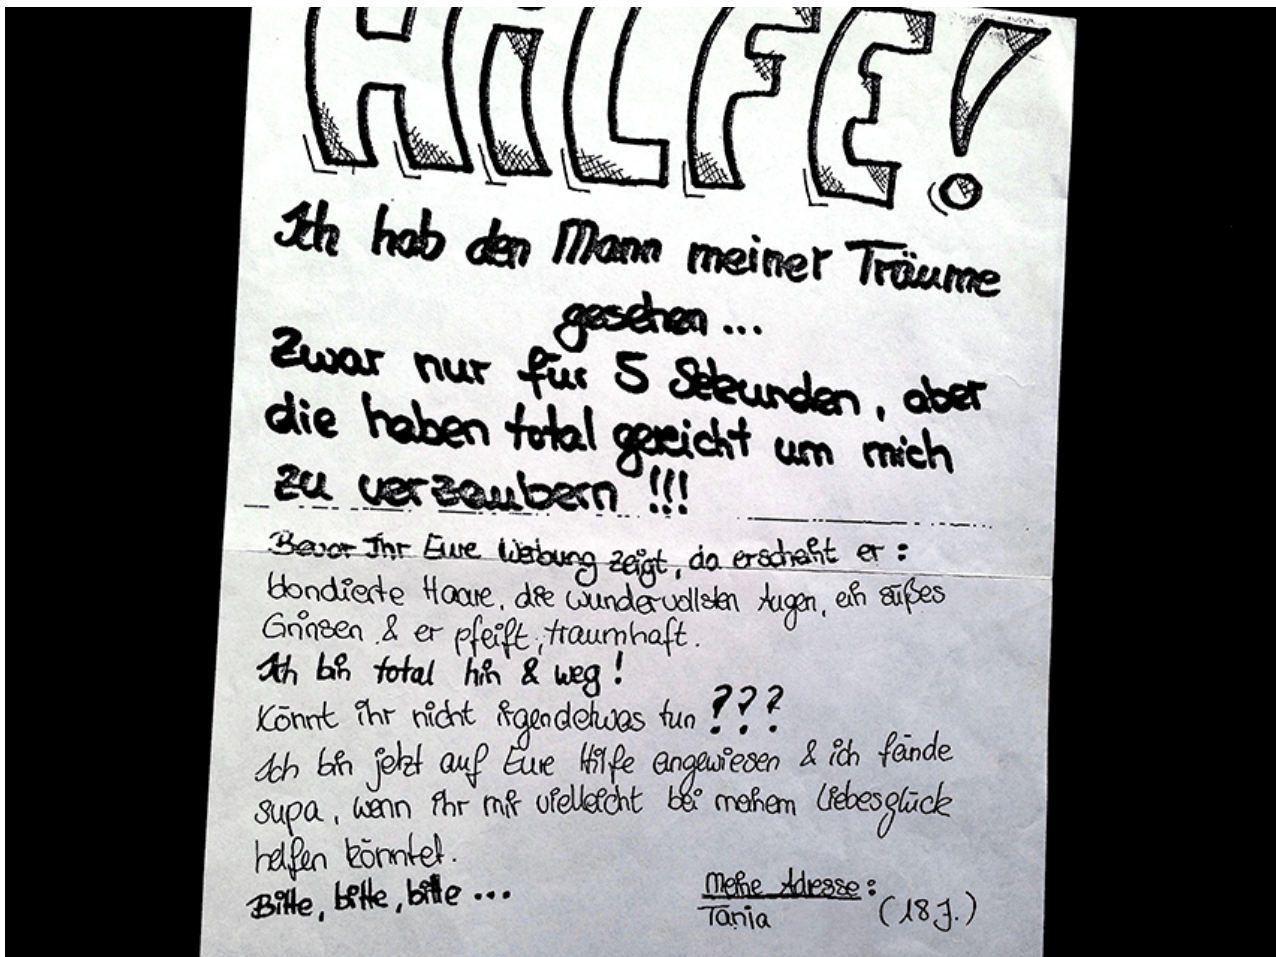 HILFE!
Ich hab den Mann meiner Träume
gesehen ...
Zwar nur für 5 Sekunden, aber
die haben total gereicht um mich
zu verzaubern !!!
Bevor Ihr Eure Werbung zeigt, da erscheint er :
blondierte Haare, die wundervollsten Augen, ein süßes
Grinsen & er pfeift, traumhaft.
Ich bin total hin & weg !
Könnt ihr nicht irgendetwas tun ???
Ich bin jetzt auf Eure Hilfe angewiesen & ich fände
supa, wenn ihr mir vielleicht bei meinem Liebesglück
helfen könntet.
Bitte, bitte, bitte ...
Meine Adresse:
Tanja (18 J.)